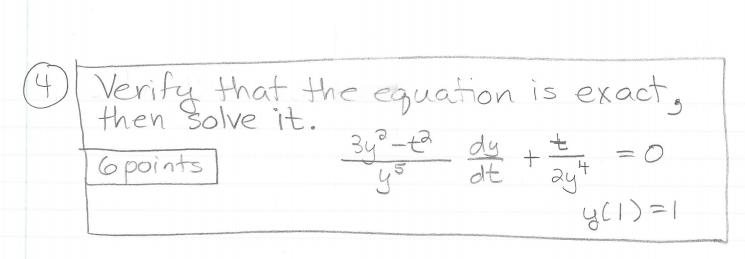 4 Verify that the equation is exact,
then solve it.
6 points
(3y²-t²)/y⁵ dy/dt + t/(2y⁴) = 0
y(1)=1